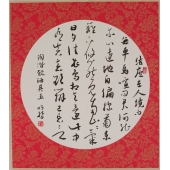 結廬在人境
而無車馬喧問君何能
爾心遠地自偏採菊東
籬下悠然見南山山氣
日夕佳飛鳥相與還此
中有真意欲辨已忘言
陶潛飲酒其五